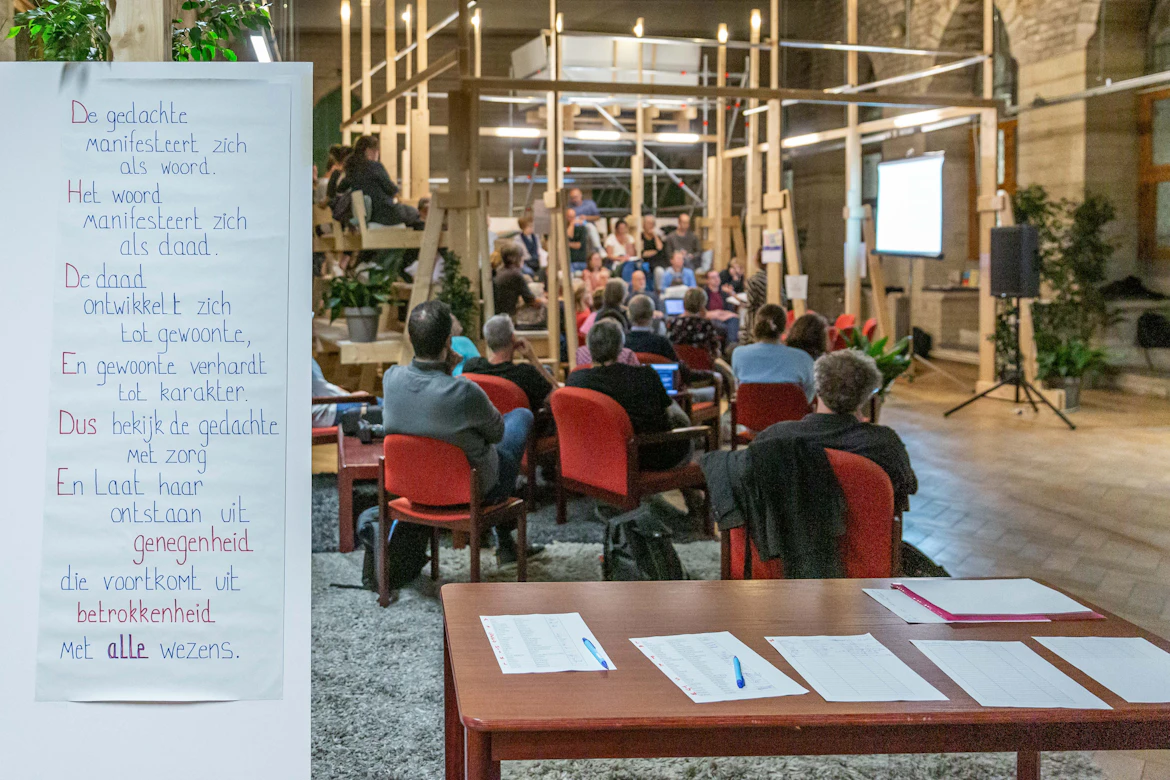 De gedachte
manifesteert zich
als woord.
Het woord
manifesteert zich
als daad.
De daad
ontwikkelt zich
tot gewoonte,
En gewoonte verhardt
tot karakter.
Dus bekijk de gedachte
met zorg
En Laat haar
ontstaan uit
genegenheid
die voortkomt uit
betrokkenheid
met alle wezens.